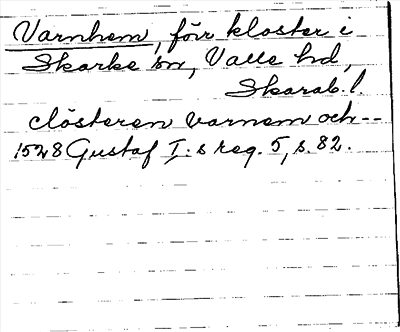 Varnhem, förr kloster i
Skarke sn, Valle hd,
Skarab. l.
clösteren varnem och--
1528 Gustaf I:s reg. 5, s. 82.